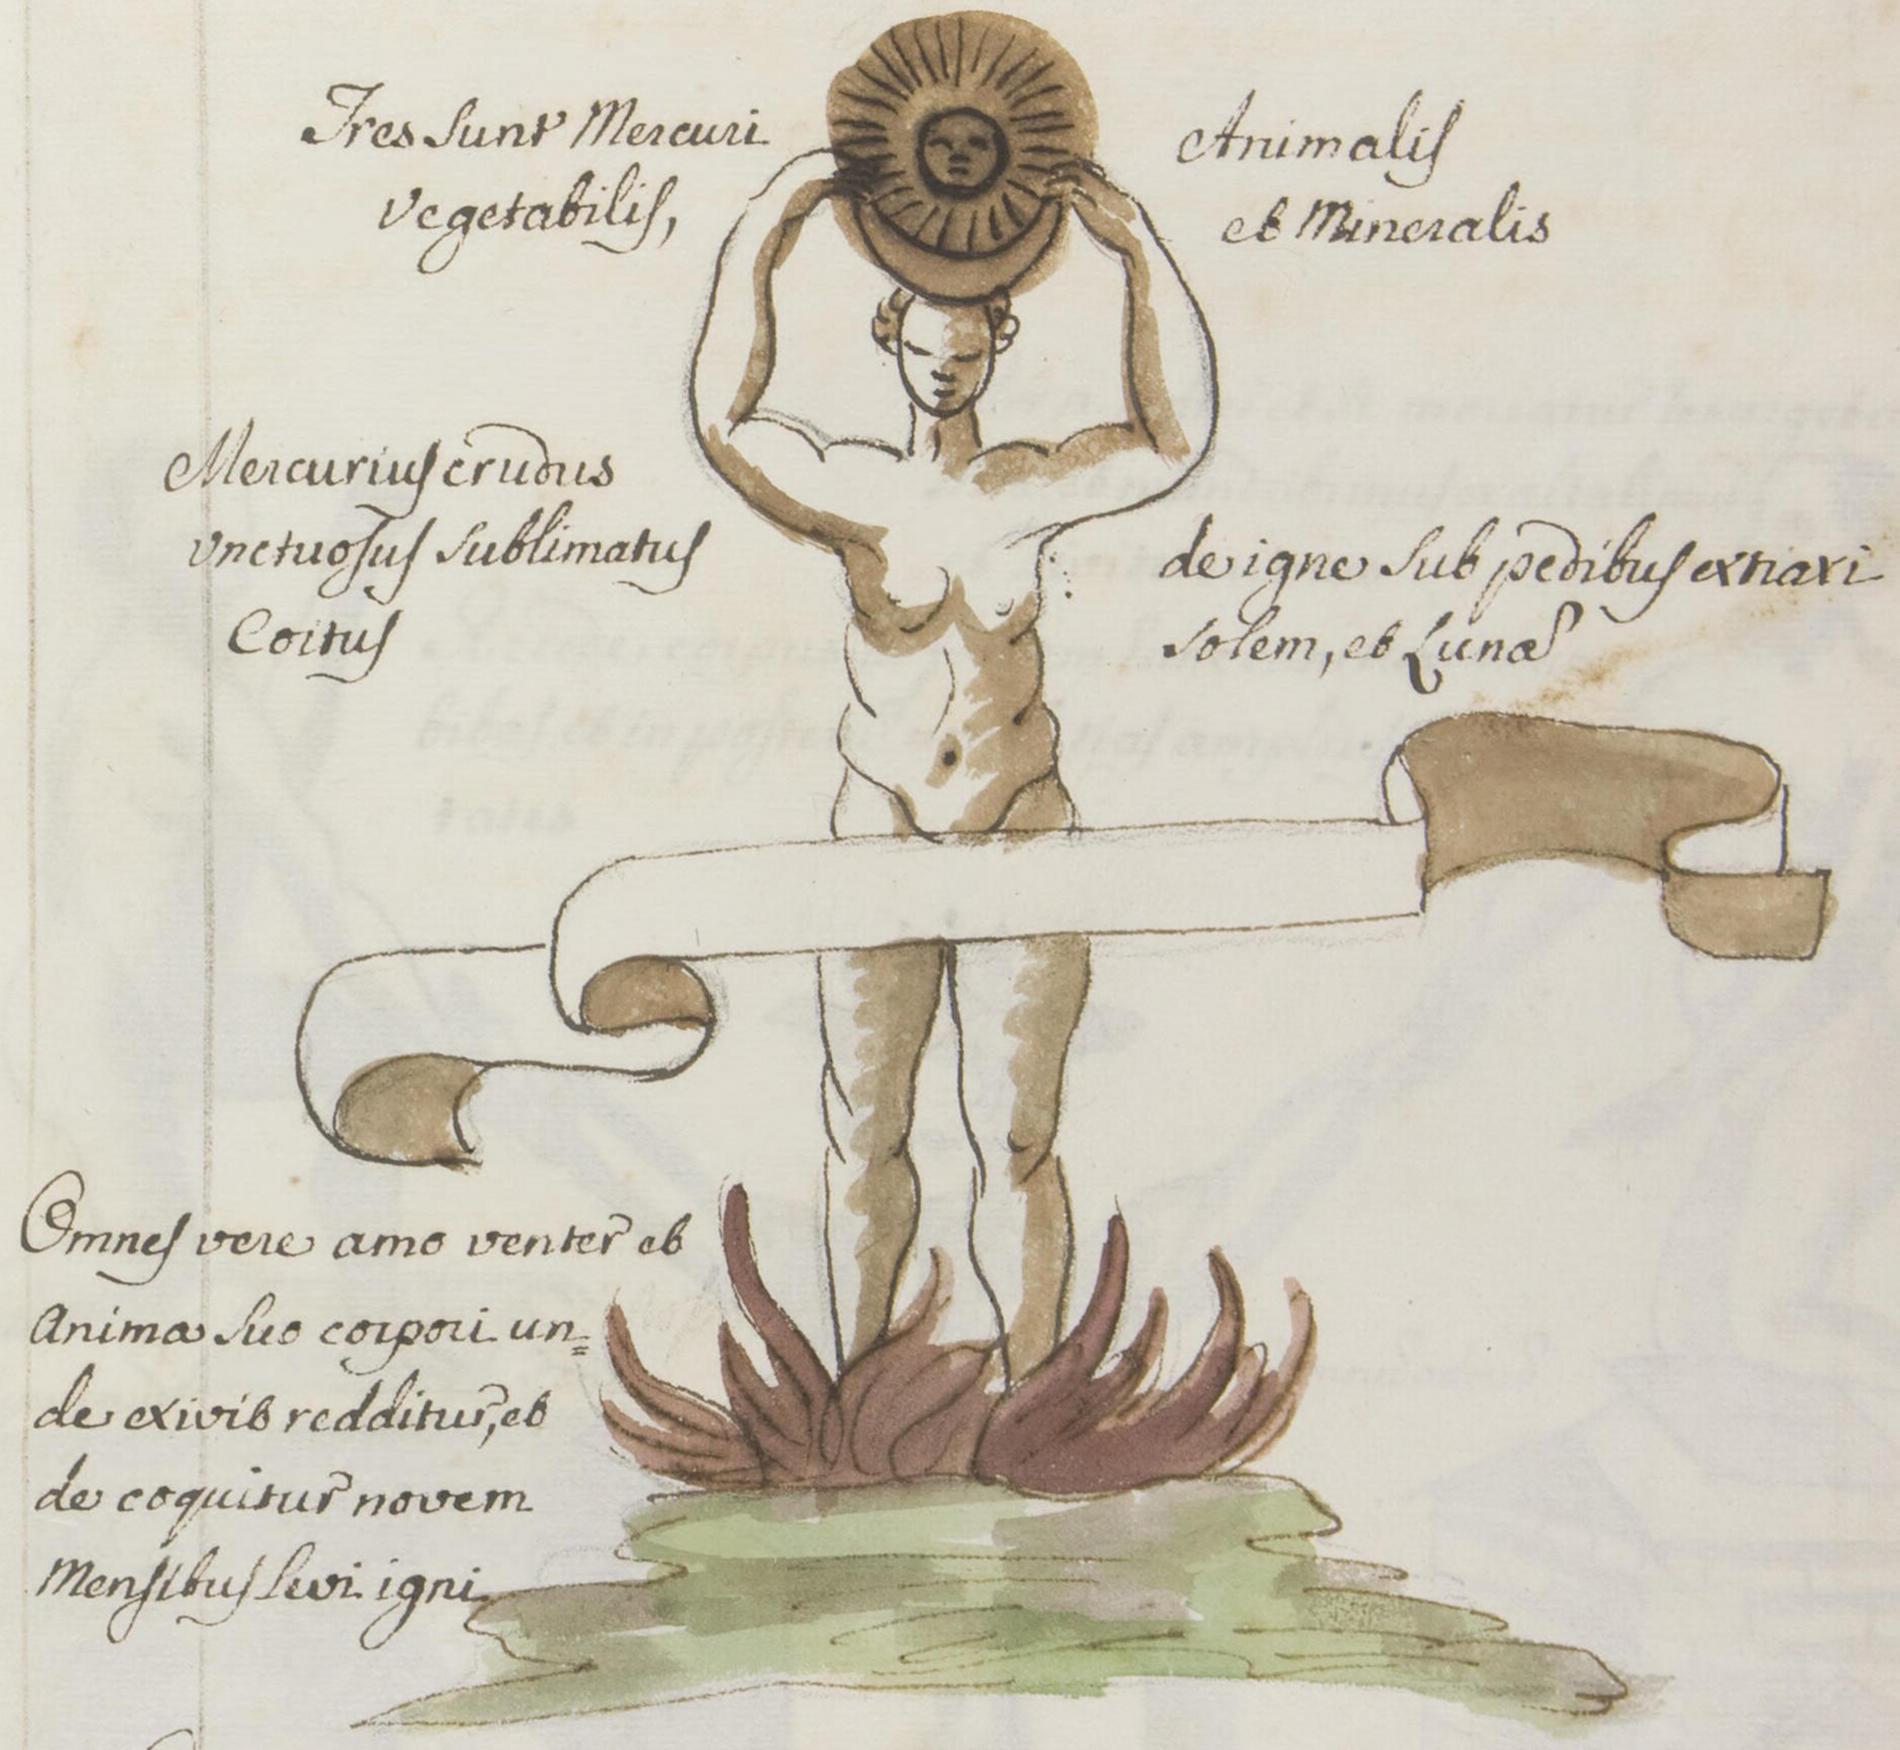 Tres sunt Mercuri
vegetabilis,
Animalis
et Mineralis
Mercurius crudus
vnctuosus sublimatus
Coitus
de igne sub pedibus extraxi
solem, et Lunã
Omnes vere amo venter et
Anima suo corpori un=
de exivit redditur, et
de coquitur novem
Mensibus levi igni